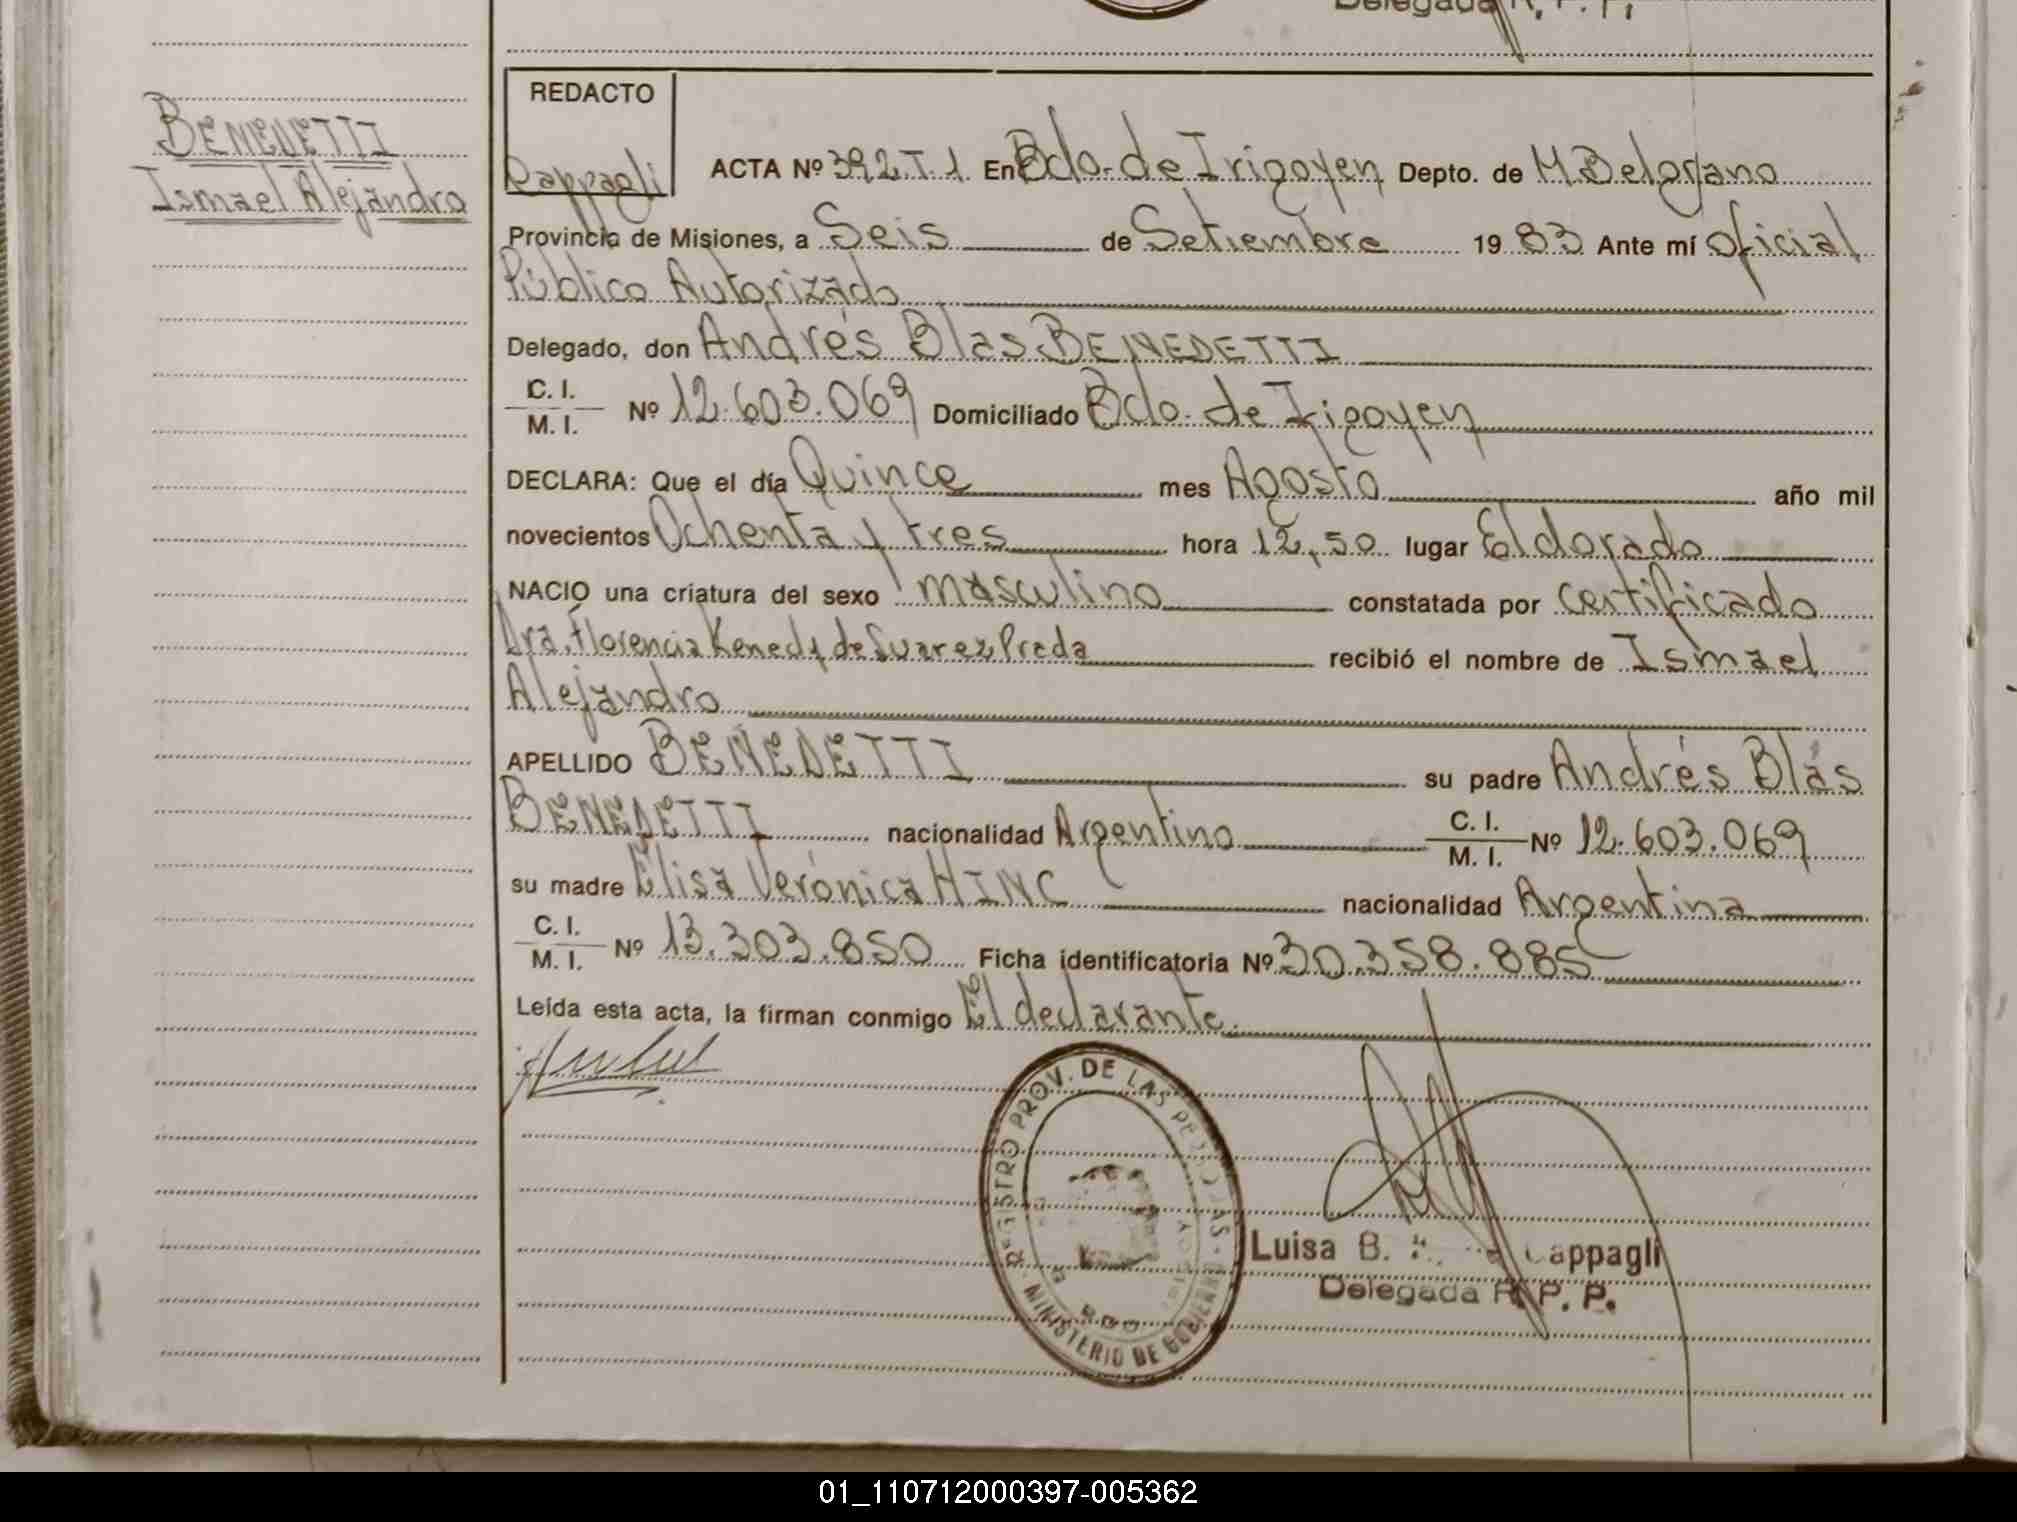 Delegada R. P. P.
BENEDETTI
Ismael Alejandro
REDACTO
Cappagli
ACTA Nº 392.T.1. En Bdo. de Irigoyen Depto. de M. Belgrano
Provincia de Misiones, a Seis de Setiembre 1983 Ante mí Oficial
Público Autorizado
Delegado, don Andrés Blas BENEDETTI
C. I.
M. I. Nº 12.603.069 Domiciliado Bdo. de Irigoyen
DECLARA: Que el día Quince mes Agosto año mil
novecientos Ochenta y tres hora 12,50 lugar Eldorado
NACIO una criatura del sexo masculino constatada por certificado
Dra. Florencia Kenedy de Suarez Preda recibió el nombre de Ismael
Alejandro
APELLIDO BENEDETTI su padre Andrés Blás
BENEDETTI nacionalidad Argentino C. I.
M. I. Nº 12.603.069
su madre Elisa Verónica HINC nacionalidad Argentina
C. I.
M. I. Nº 13.303.850 Ficha identificatoria Nº 30.358.885
Leída esta acta, la firman conmigo El declarante.
REGISTRO PROV. DE LAS PERSONAS
MINISTERIO DE GOBIERNO
Luisa B. Cappagli
Delegada R. P. P.
01_110712000397-005362